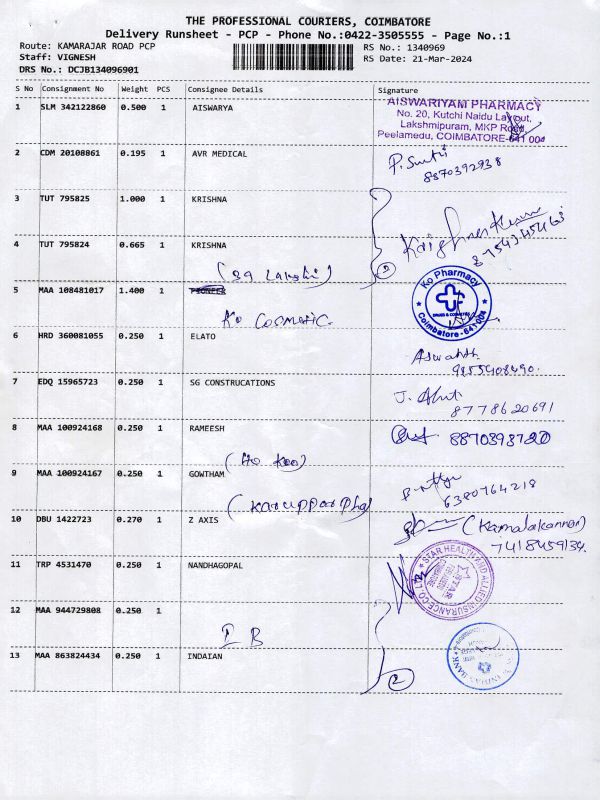 THE PROFESSIONAL COURIERS, COIMBATORE
Delivery Runsheet - PCP - Phone No.:0422-3505555 - Page No.:1
Route: KAMARAJAR ROAD PCP RS No.: 1340969
Staff: VIGNESH RS Date: 21-Mar-2024
DRS No.: DCJB134096901
S No Consignment No Weight PCS Consignee Details Signature
1 SLM 342122860 0.500 1 AISWARYA
AISWARIYAM PHARMACY
No. 20, Kutchi Naidu Layout,
Lakshmipuram, MKP Road,
Peelamedu, COIMBATORE-641 004
2 CDM 20108861 0.195 1 AVR MEDICAL
8870392938
3 TUT 795825 1.000 1 KRISHNA
4 TUT 795824 0.665 1 KRISHNA
2
5 MAA 108481017 1.400 1
Ko Pharmacy
DRUGS & COSMETICS
Coimbatore-641 004
Ko Cosmetic.
6 HRD 360081055 0.250 1 ELATO
7 EDQ 15965723 0.250 1 SG CONSTRUCATIONS
8778620691
8 MAA 100924168 0.250 1 RAMEESH
9 MAA 100924167 0.250 1 GOWTHAM
6380764218
10 DBU 1422723 0.270 1 Z AXIS (Kamalakannan)
7418459134.
11 TRP 4531470 0.250 1 NANDHAGOPAL
STAR HEALTH AND ALLIED INSURANCE CO. LTD
12 MAA 944729808 0.250 1
I B
13 MAA 863824434 0.250 1 INDAIAN
2
INDIAN BANK